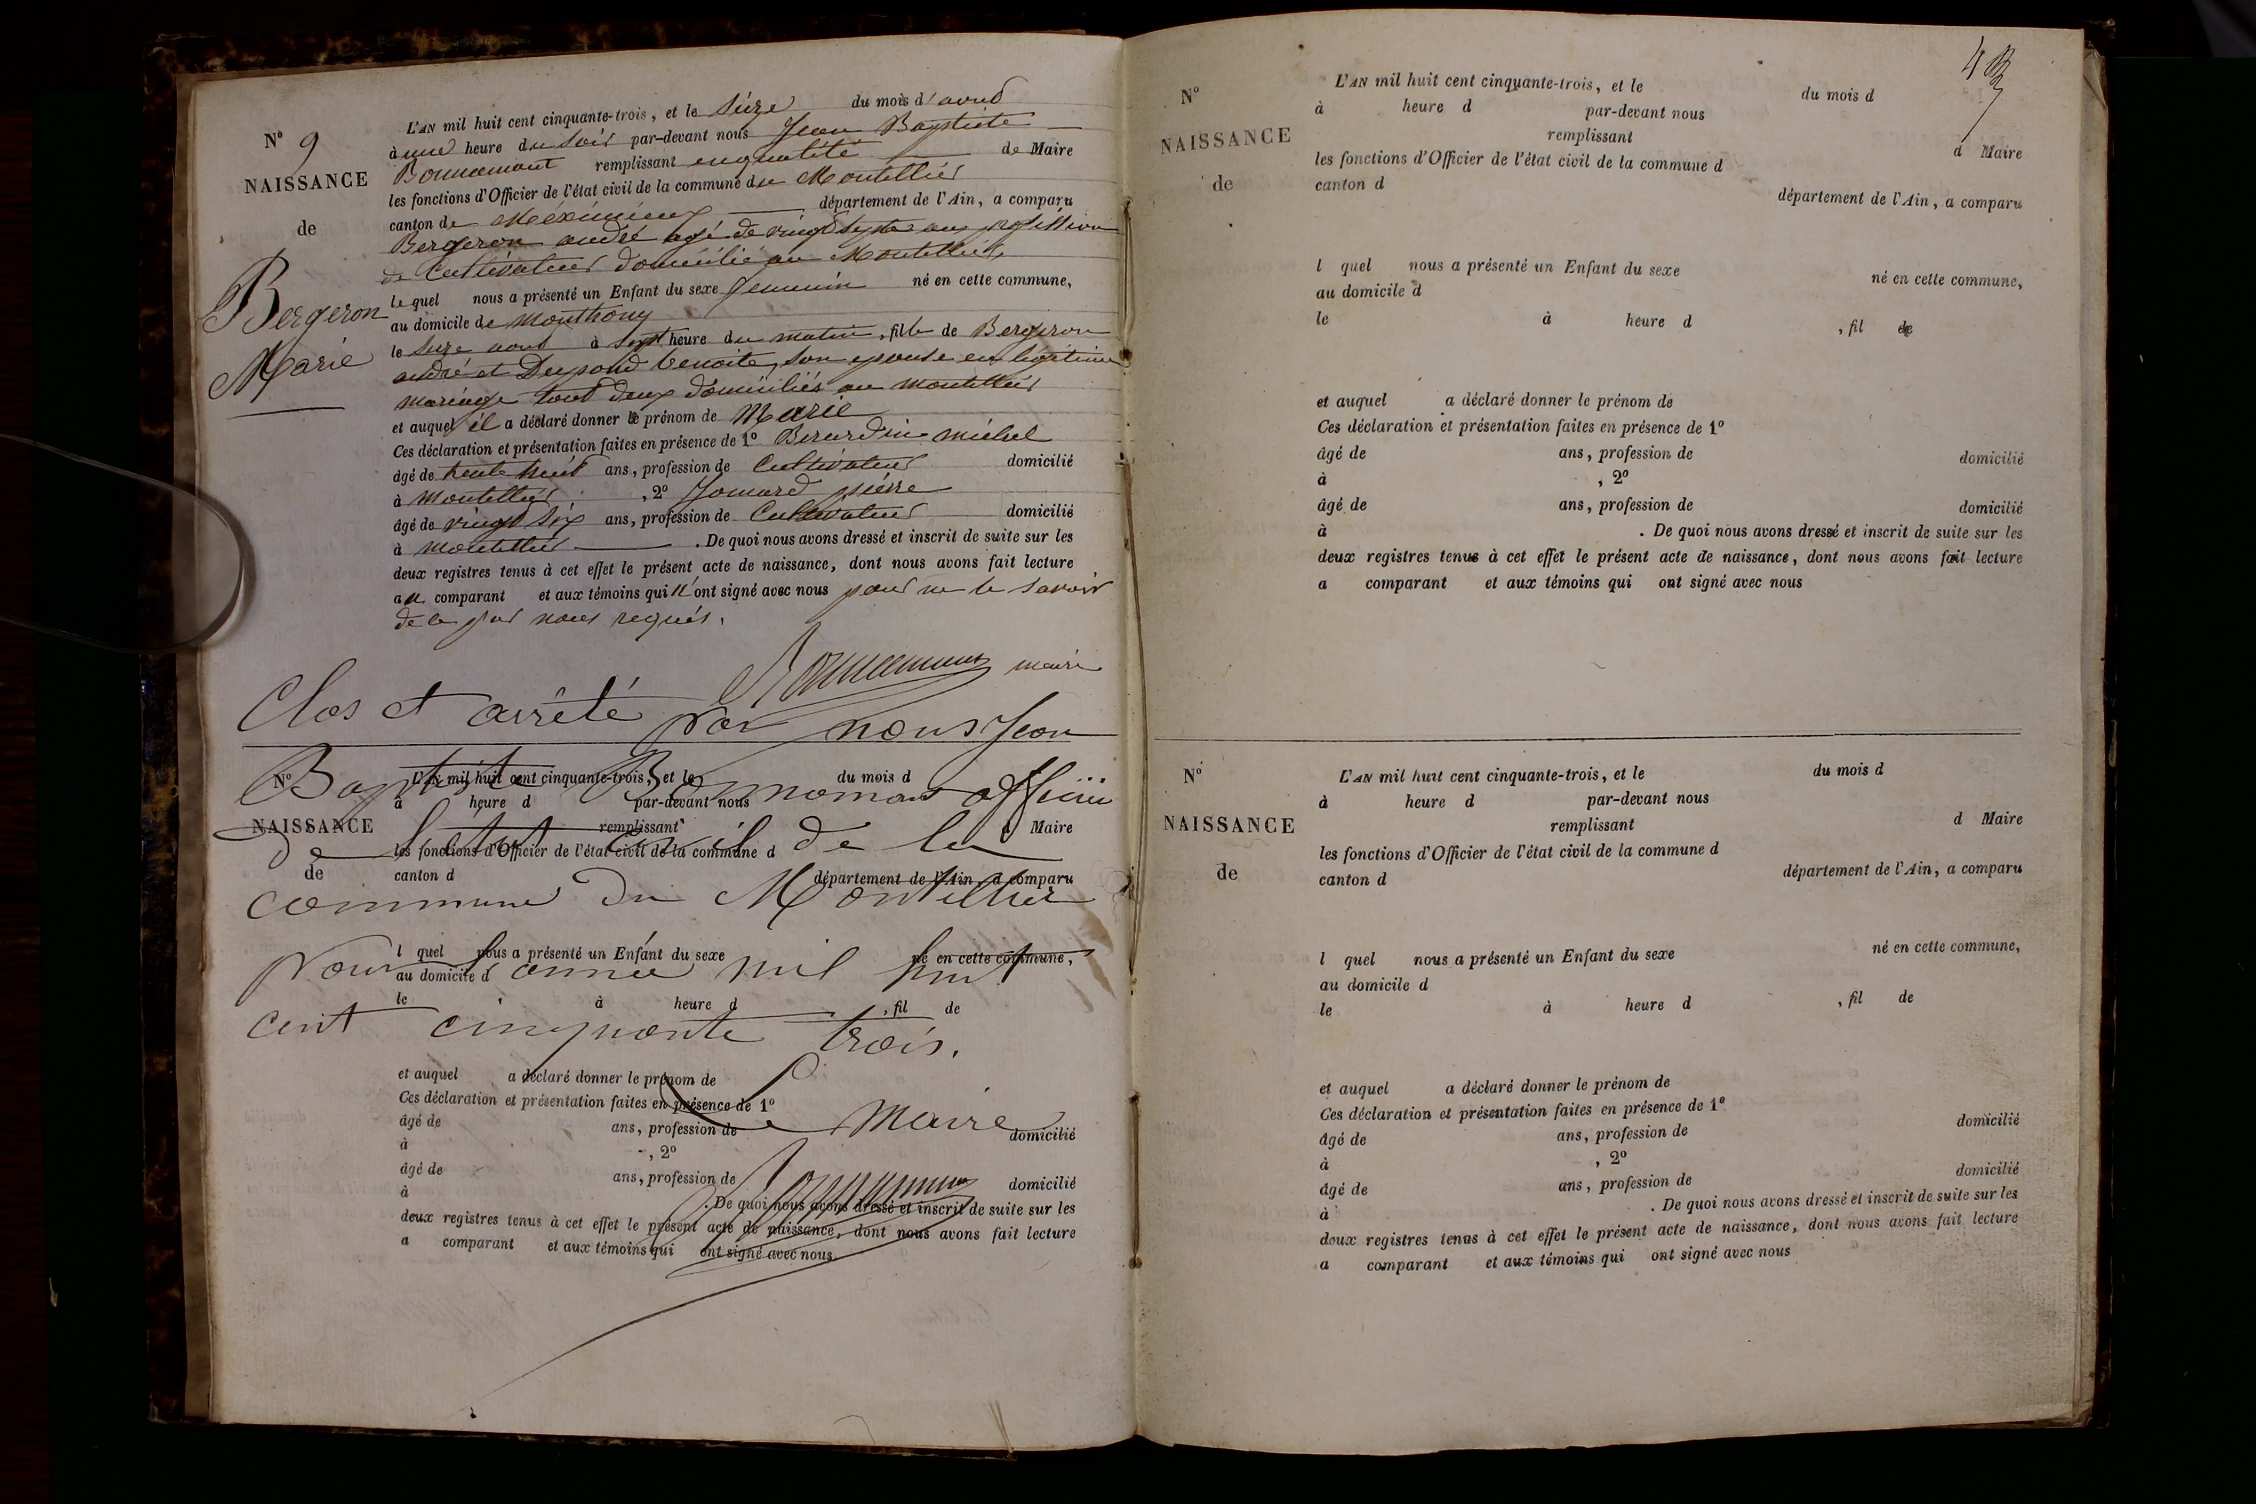 N° 9
NAISSANCE
de
Bergeron
Marie
L'AN mil huit cent cinquante-trois, et le seize du mois d'aoud
à une heure du soir par-devant nous Jean Baptiste
Bonnamant remplissant enqualité de Maire
les fonctions d'Officier de l'état civil de la commune du Montellier
canton de Méximieux département de l'Ain, a comparu
Bergeron andré agé de vingt septe ans profession
de Cultivateur domicilié au Montellier
lequel nous a présenté un Enfant du sexe femenin né en cette commune,
au domicile de Monthony
le seize aout à sept heure du matin, fille de Bergeron
andré et benoite, son epouse en légitime
mariage tout deux domiciliés au montellier
et auquel il a déclaré donner le prénom de Marie
Ces déclaration et présentation faites en présence de 1° michel
âgé de trente huit ans, profession de Cultivateur domicilié
à Montellier, 2° Jomard pierre
âgé de vingt six ans, profession de Cultivateur domicilié
à montellier. De quoi nous avons dressé et inscrit de suite sur les
deux registres tenus à cet effet le présent acte de naissance, dont nous avons fait lecture
au comparant et aux témoins qui n'ont signé avec nous pour ne le savoir
de ce par nous requis.
Bonnamant maire
Clos et arrêté par nous Jean
Baptiste Bonnamant officier
de l'état civil de la
commune du Montellier
pour l'année mil huit
cent cinquante trois.
Le Maire
Bonnamant
N°
NAISSANCE
de
L'AN mil huit cent cinquante-trois, et le du mois d
à heure d par-devant nous
remplissant d Maire
les fonctions d'Officier de l'état civil de la commune d
canton d département de l'Ain, a comparu
l quel nous a présenté un Enfant du sexe né en cette commune,
au domicile d
le à heure d , fil de
et auquel a déclaré donner le prénom de
Ces déclaration et présentation faites en présence de 1°
âgé de ans, profession de domicilié
à , 2°
âgé de ans, profession de domicilié
à . De quoi nous avons dressé et inscrit de suite sur les
deux registres tenus à cet effet le présent acte de naissance, dont nous avons fait lecture
a comparant et aux témoins qui ont signé avec nous
4
N°
NAISSANCE
de
L'AN mil huit cent cinquante-trois, et le du mois d
à heure d par-devant nous
remplissant d Maire
les fonctions d'Officier de l'état civil de la commune d
canton d département de l'Ain, a comparu
l quel nous a présenté un Enfant du sexe né en cette commune,
au domicile d
le à heure d , fil de
et auquel a déclaré donner le prénom de
Ces déclaration et présentation faites en présence de 1°
âgé de ans, profession de domicilié
à , 2°
âgé de ans, profession de domicilié
à . De quoi nous avons dressé et inscrit de suite sur les
deux registres tenus à cet effet le présent acte de naissance, dont nous avons fait lecture
a comparant et aux témoins qui ont signé avec nous
N°
NAISSANCE
de
L'AN mil huit cent cinquante-trois, et le du mois d
à heure d par-devant nous
remplissant d Maire
les fonctions d'Officier de l'état civil de la commune d
canton d département de l'Ain, a comparu
l quel nous a présenté un Enfant du sexe né en cette commune,
au domicile d
le à heure d , fil de
et auquel a déclaré donner le prénom de
Ces déclaration et présentation faites en présence de 1°
âgé de ans, profession de domicilié
à , 2°
âgé de ans, profession de domicilié
à . De quoi nous avons dressé et inscrit de suite sur les
deux registres tenus à cet effet le présent acte de naissance, dont nous avons fait lecture
a comparant et aux témoins qui ont signé avec nous